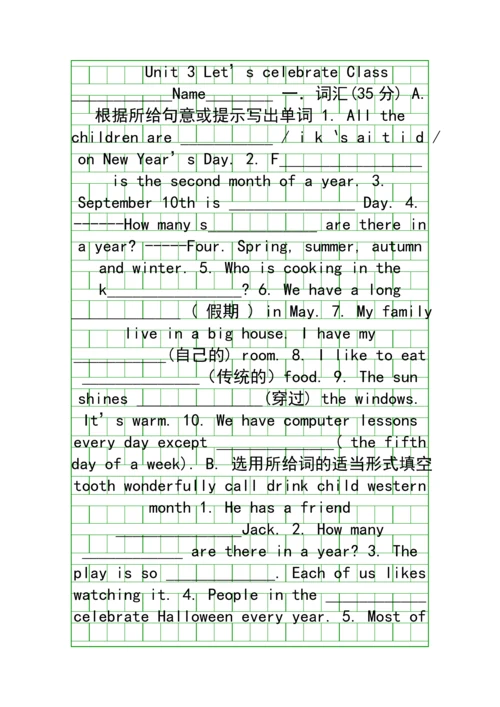 Unit 3 Let's celebrate Class
___________Name________ 一．词汇(35 分) A.
根据所给句意或提示写出单词 1. All the
children are ___________ / i k 'sai t i d /
on New Year's Day. 2. F_________________
is the second month of a year. 3.
September 10th is _______________ Day. 4.
------How many s_____________ are there in
a year? -----Four. Spring, summer, autumn
and winter. 5. Who is cooking in the
k________________? 6. We have a long
_____________ ( 假期 ) in May. 7. My family
live in a big house. I have my
___________(自己的) room. 8. I like to eat
______________ （传统的）food. 9. The sun
shines _______________(穿过) the windows.
It's warm. 10. We have computer lessons
every day except ______________( the fifth
day of a week). B. 选用所给词的适当形式填空
tooth wonderfully call drink child western
month 1. He has a friend
_______________Jack. 2. How many
____________ are there in a year? 3. The
play is so _____________. Each of us likes
watching it. 4. People in the ____________
celebrate Halloween every year. 5. Most of